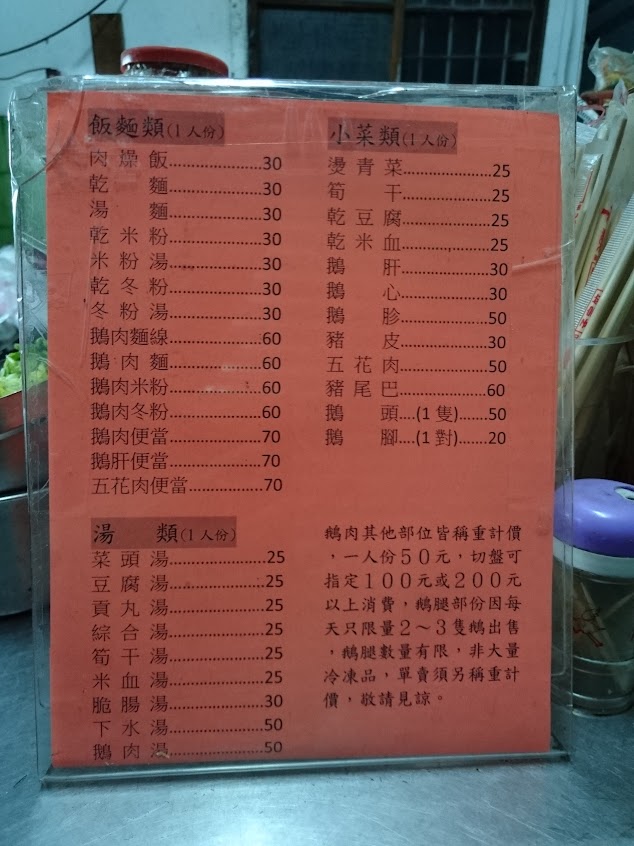 飯麵類(1人份)
肉燥飯....................30
乾麵....................30
湯麵....................30
乾米粉....................30
米粉湯....................30
乾冬粉....................30
冬粉湯....................30
鵝肉麵線....................60
鵝肉麵....................60
鵝肉米粉....................60
鵝肉冬粉....................60
鵝肉便當....................70
鵝肝便當....................70
五花肉便當.................70
湯類(1人份)
菜頭湯....................25
豆腐湯....................25
貢丸湯....................25
綜合湯....................25
筍干湯....................25
米血湯....................25
脆腸湯....................30
下水湯....................50
鵝肉湯....................50
小菜類(1人份)
燙青菜....................25
筍干....................25
乾豆腐....................25
乾米血....................25
鵝肝....................30
鵝心....................30
鵝胗....................50
豬皮....................30
五花肉....................50
豬尾巴....................60
鵝頭....(1隻)......50
鵝腳....(1對).......20
鵝肉其他部位皆稱重計價
，一人份50元，切盤可
指定100元或200元
以上消費，鵝腿部份因每
天只限量2～3隻鵝出售
，鵝腿數量有限，非大量
冷凍品，單賣須另稱重計
價，敬請見諒。